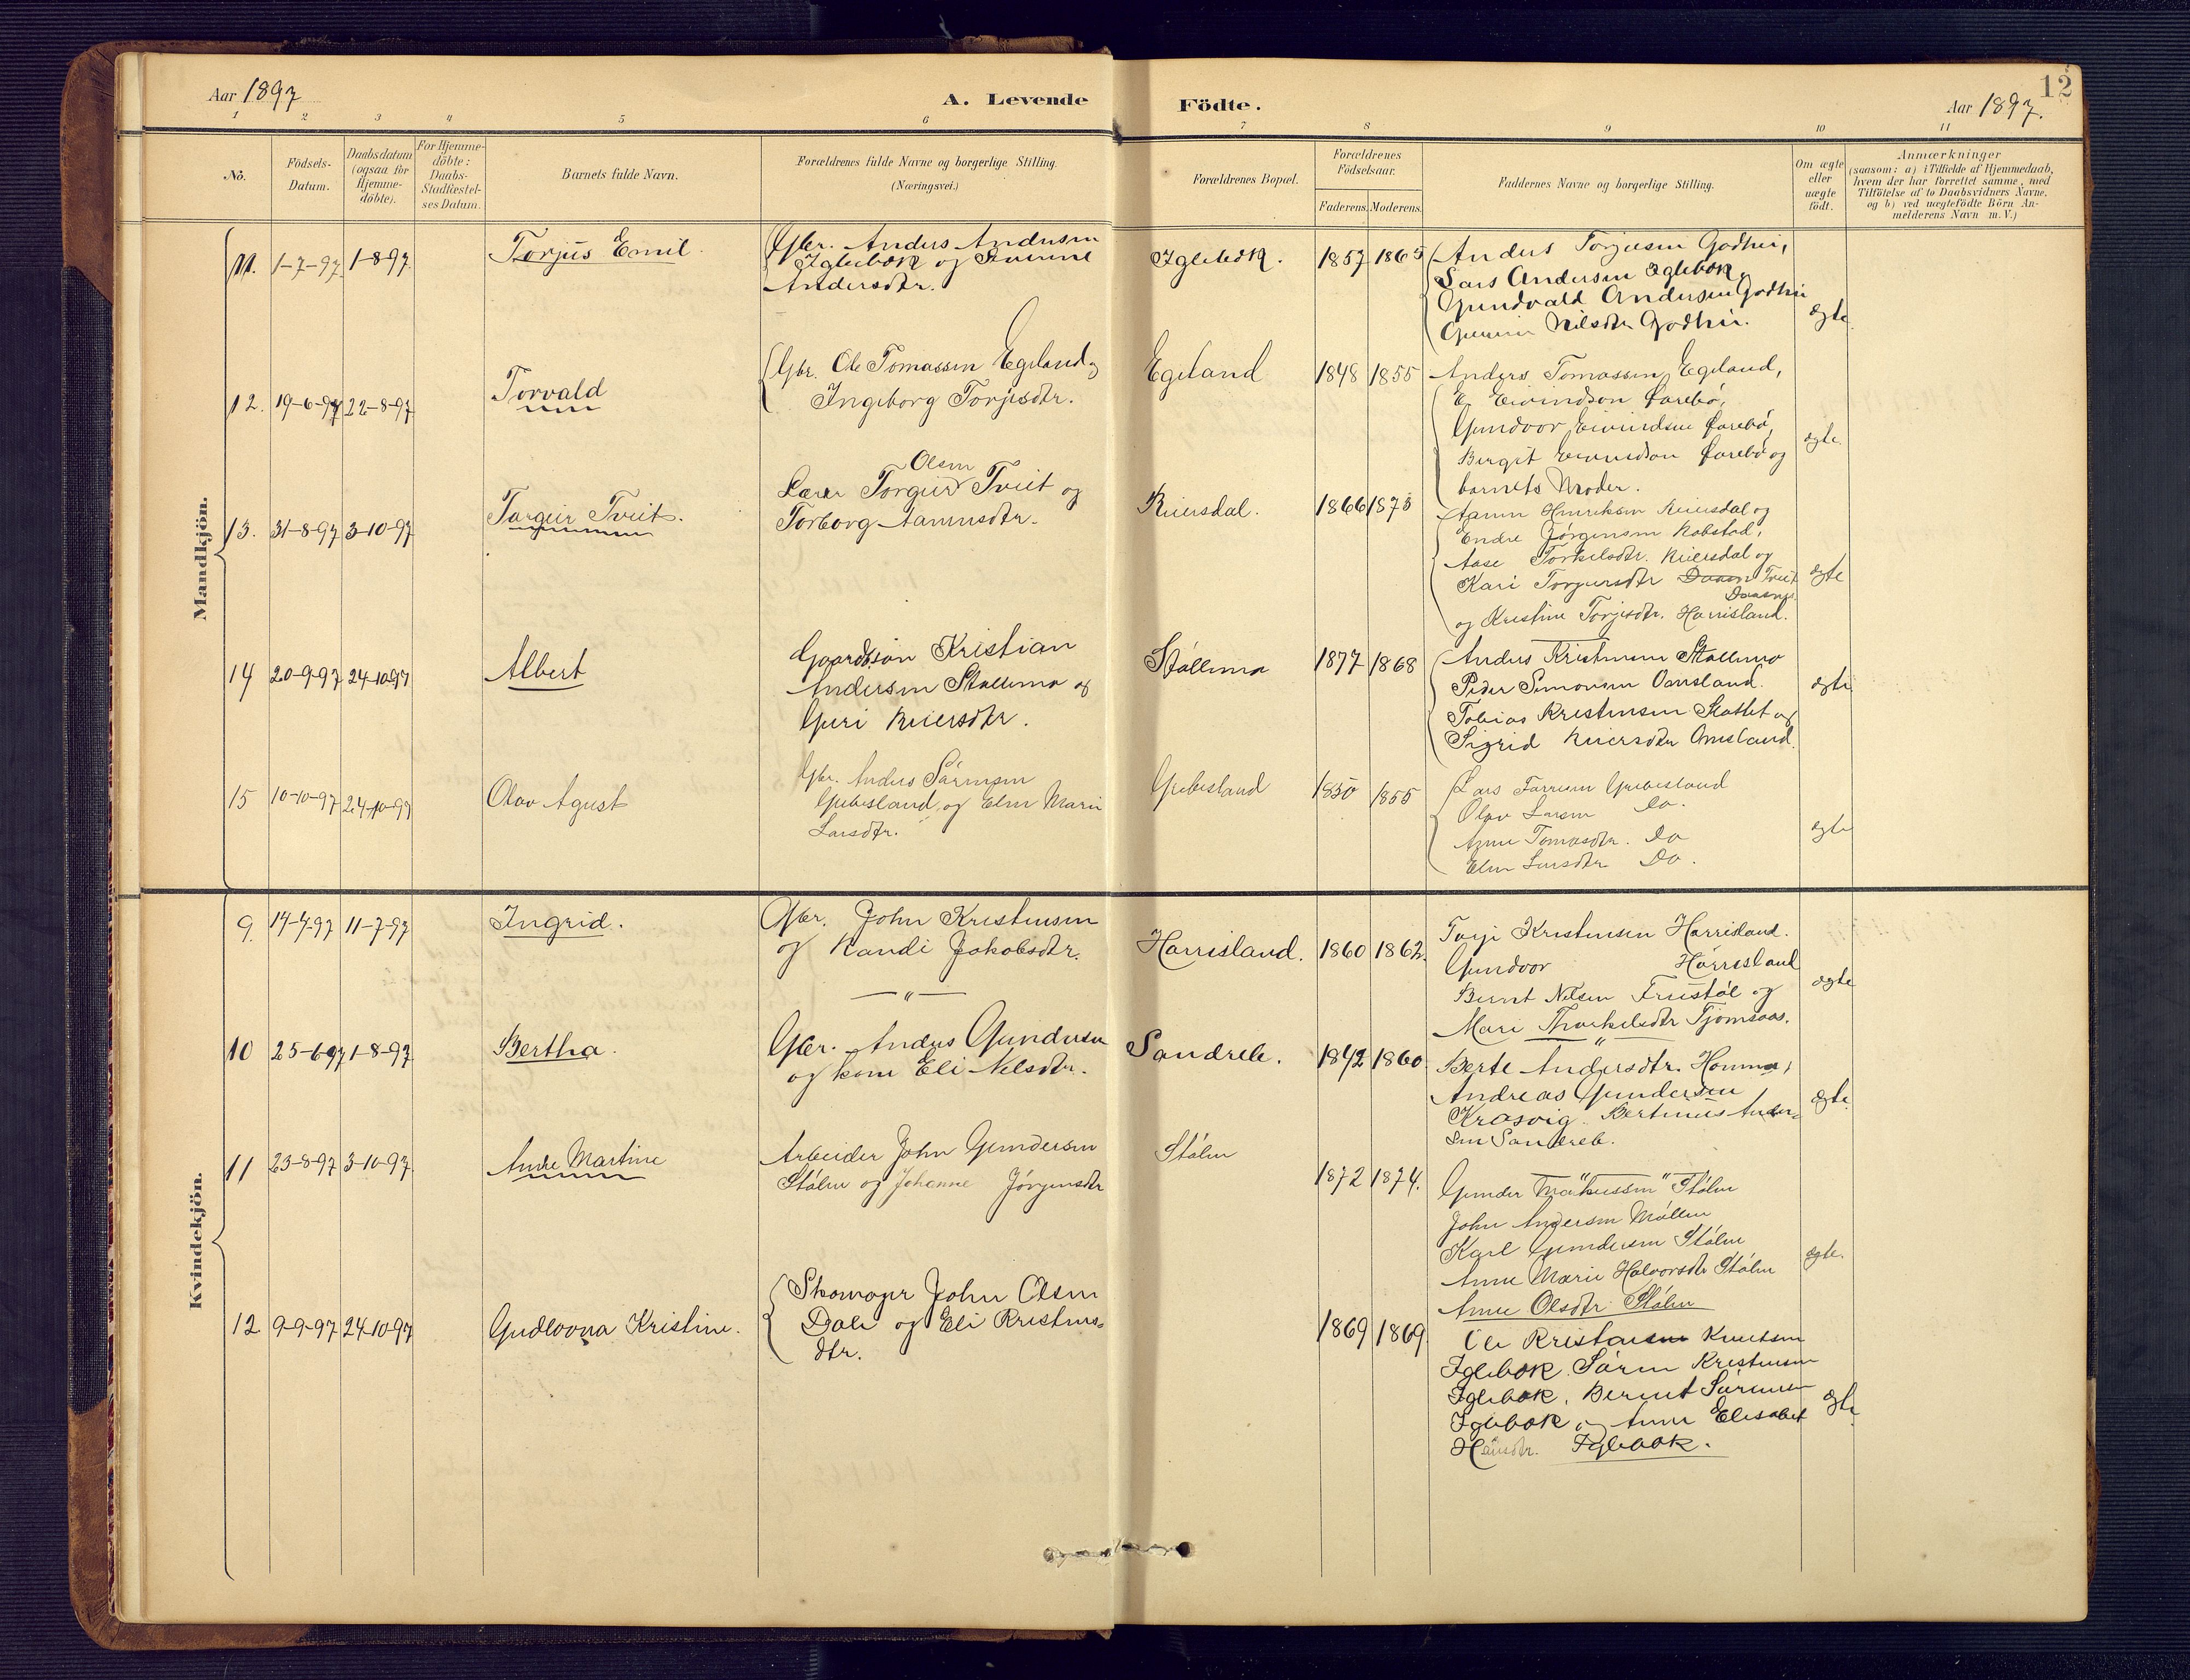 12
Aar 1897
A. Levende
Födte.
Aar 1897.
1 2 3 4 5 6 7 8 9 10 11
No.
Födsels-
Datum.
Daabsdatum
(ogsaa för
Hjemme-
döbte).
For Hjemme-
döbte:
Daabs-
Stadfæstel-
ses Datum.
Barnets fulde Navn.
Forældrenes fulde Navne og borgerlige Stilling.
(Næringsvei.)
Forældrenes Bopæl.
Forældrenes
Födselsaar.
Faderens. Moderens.
Faddernes Navne og borgerlige Stilling.
Om ægte
eller
uægte
födt.
Anmærkninger
(saasom: a) i Tilfælde af Hjemmedaab,
hvem der har forrettet samme, med
Tilföielse af to Daabsvidners Navne.
og b) ved uægtefödte Börn An-
melderens Navn m. V.)
Mandkjön.
11. 1-7-97 1-8-97
Torjus Emil
Gbr. Anders Andersen
Iglebæk og
Andersdtr.
Iglebæk.
1857 1865
Anders Torjusen Godhei,
Lars Andersen Iglebæk,
Gundvald Andersen Godhei
Nilsdtr Godhei.
ægte
12. 19-6-97 22-8-97
Torvald
Gbr. Ole Tomassen Egeland og
Ingeborg Torjusdtr.
Egeland
1848 1855
Anders Tomassen Egeland,
E. Eivindson
Gundvor Eivindsen
Birgit Eivindson og
barnets Moder.
ægte
13. 31-8-97 3-10-97
Torgeir Tveit.
Olsen
Lærer Torgeir Tveit og
Torborg Aanensdtr.
Reiersdal.
1866 1873
Aanen Henriksen Reiersdal og
Endre Jørgensen Robstad,
Aase Torkelsdtr. Reiersdal og
Kari Torgersdtr Tveit
og Kristine Torjusdtr. Harrisland.
ægte
14 20-9-97 24-10-97
Albert
Gaardssøn Kristian
Andersen Stallemo og
Guri Reiersdtr.
Stallemo
1877 1868
Anders Kristensen Stallemo
Peder Simonsen Omsland.
Tobias Kristensen og
Sigrid Reiersdtr Omsland.
ægte
15 10-10-97 24-10-97
Olav Agust
Gbr. Anders Sørensen
Greibesland og Elen Marie
Larsdtr.
Greibesland
1850 1855
Lars Greibesland
Olav Larsen Do.
Anne Tomasdtr. Do
Elen Larsdtr Do.
ægte
Kvindekjön.
9. 14-4-97 11-7-97
Ingrid.
Gbr. John Kristensen
og Randi Jakobsdtr.
— " —
Harrisland.
1860 1862.
Torje Kristensen Harrisland.
Gundvor Harrisland
Bernt Nilsen Frustøl og
Mari Thorkelsdtr Tjomsaas.
ægte
10 25-6-97 1-8-97
Bertha.
Gbr. Anders Gundersen
og kone Eli Nilsdtr.
Sandrele.
1842 1860
Berte Andersdtr. Homme,
Andreas Gundersen
Krosvig. Bertinus Ander-
sen Sandrele.
ægte.
11 23-8-97 3-10-97
Anne Martine
Arbeider John Gundersen
Stålen og Johanne Jørgensdtr
Stålen
1872 1874.
Gunder Stålen
John Andersen Møllen
Karl Gundersen Stålen
Anne Marie Halvorsdtr Stålen
Anne Olsdtr. Stålen
ægte.
12 9-9-97 24-10-97
Gudlovna Kristine.
Skomager John Olsen
Dale og Eli Kristens-
dtr.
1869 1869
Ole Kristensen Knutsen
Iglebæk. Søren Kristensen
Iglebæk, Bernt Sørensen
Iglebæk og Anne Elisabet
Hansdtr. Iglebæk.
ægte